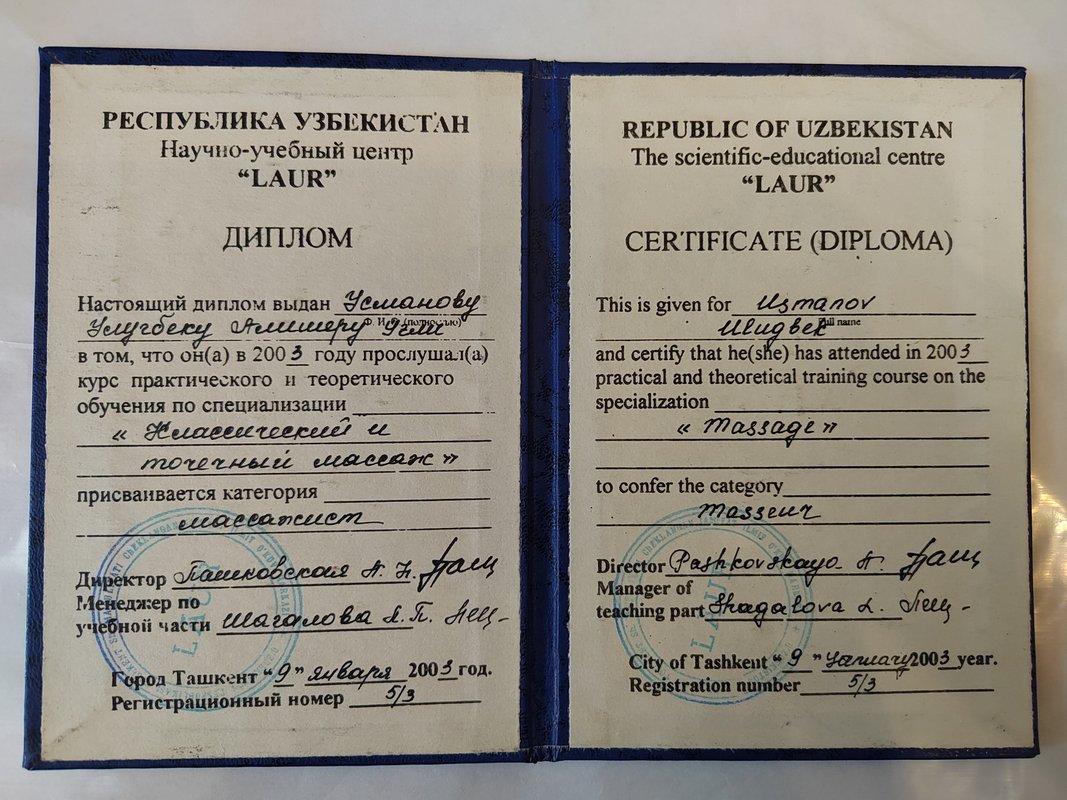 РЕСПУБЛИКА УЗБЕКИСТАН
Научно-учебный центр
“LAUR”
ДИПЛОМ
Настоящий диплом выдан Усманову
Ф. И. О. (полностью)
Улугбеку Алишеру Угли
в том, что он(а) в 2003 году прослушал(а)
курс практического и теоретического
обучения по специализации
« Классический и
точечный массаж »
присваивается категория
массажист
Директор Пашковская А. Н.
Менеджер по
учебной части Шагалова Л. П.
Город Ташкент “ 9 ” января 2003 год.
Регистрационный номер 5/3
REPUBLIC OF UZBEKISTAN
The scientific-educational centre
“LAUR”
CERTIFICATE (DIPLOMA)
This is given for Uzmanov
full name
and certify that he(she) has attended in 2003
practical and theoretical training course on the
specialization
« Massage »
to confer the category
Masseur
Director Pashkovskaya A.
Manager of
teaching part Shagalova L.
City of Tashkent “ 9 ” January 2003 year.
Registration number 5/3
LAUR
LAUR